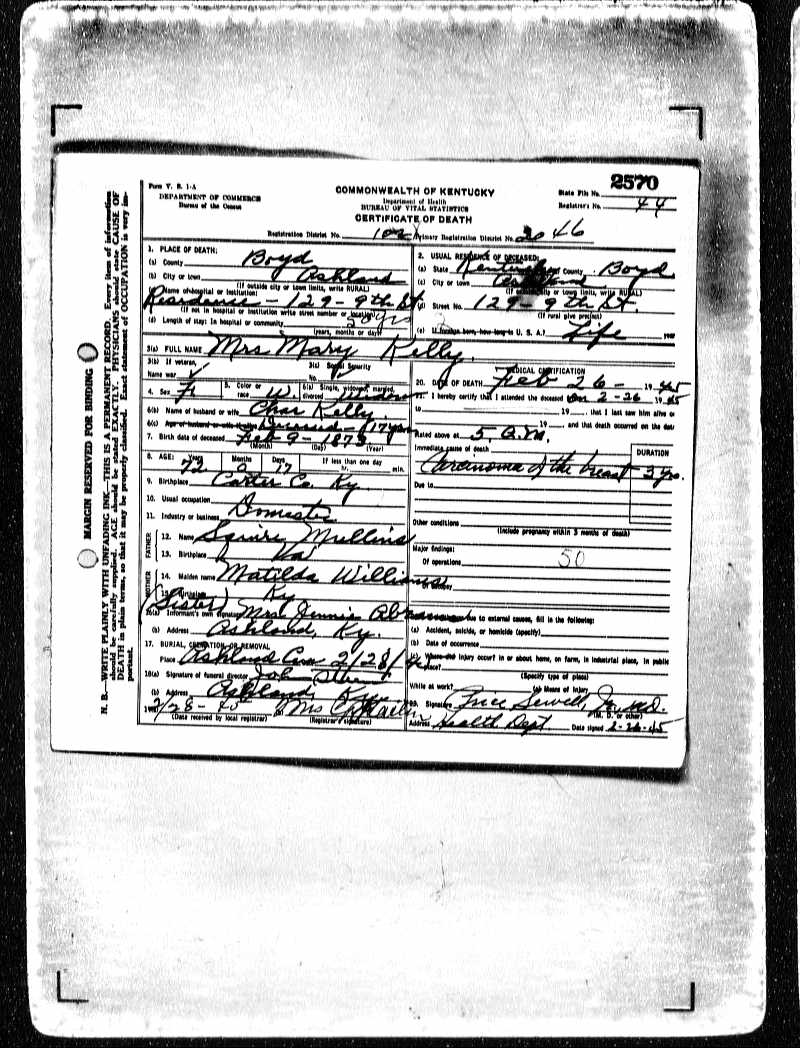 2570
Form V. S. 1-A
DEPARTMENT OF COMMERCE
Bureau of the Census
COMMONWEALTH OF KENTUCKY
Department of Health
BUREAU OF VITAL STATISTICS
CERTIFICATE OF DEATH
State File No.
Registrar's No. 44
Registration District No. 102 Primary Registration District No. 2046
MARGIN RESERVED FOR BINDING
N. B.—WRITE PLAINLY WITH UNFADING INK—THIS IS A PERMANENT RECORD. Every item of information
should be carefully supplied. AGE should be stated EXACTLY. PHYSICIANS should state CAUSE OF
DEATH in plain terms, so that it may be properly classified. Exact statement of OCCUPATION is very im-
portant.
1. PLACE OF DEATH:
(a) County Boyd
(b) City or town Ashland
(If outside city or town limits, write RURAL)
(c) Name of hospital or institution:
Residence - 129 - 9th St.
(If not in hospital or institution write street number or location)
(d) Length of stay: In hospital or community 50 yrs
(years, months or days)
2. USUAL RESIDENCE OF DECEASED:
(a) State Kentucky County Boyd
(c) City or town Ashland
(If outside city or town limits, write RURAL)
(d) Street No. 129 - 9th St.
(If rural give precinct)
(e) If foreign born, how long in U. S. A.? Life year
3(a) FULL NAME Mrs Mary Kelly
3(b) If veteran,
Name war
3(c) Social Security
No.
4. Sex F
5. Color or
race W
6(a) Single, widowed, married,
divorced Widow
6(b) Name of husband or wife Chas Kelly
6(c) Age of husband or wife Deceased - 17 yrs
7. Birth date of deceased Feb 9 - 1873
(Month) (Day) (Year)
8. AGE: Years Months Days If less than one day
72 0 17 hr. min.
9. Birthplace Carter Co. Ky
10. Usual occupation
11. Industry or business Domestic
FATHER
12. Name Squire Mullins
13. Birthplace Va
MOTHER
14. Maiden name Matilda Williams
15. Birthplace Ky
(Sister)
16(a) Informant's own signature Mrs Jennie
(b) Address Ashland, Ky.
17. BURIAL, CREMATION OR REMOVAL
Place Ashland Cem 2/28/45
18(a) Signature of funeral director John
(b) Address Ashland, Ky
19(a) 2/28-45 (b) Mrs
(Date received by local registrar) (Registrar's signature)
MEDICAL CERTIFICATION
20. DATE OF DEATH Feb 26 - 1945
I hereby certify that I attended the deceased on 2-26 1945
to 19 that I last saw him alive on
19 and that death occurred on the date
stated above at 5 A.M.
Immediate cause of death DURATION
Carcinoma of the breast 3 yrs.
Due to
Other conditions
(Include pregnancy within 3 months of death)
Major findings:
Of operations 50
Of autopsy
due to external causes, fill in the following:
(a) Accident, suicide, or homicide (specify)
(b) Date of occurrence
(c) Where did injury occur? in or about home, on farm, in industrial place, in public
place?
(Specify type of place)
While at work? (e) Means of injury
23. Signature Price Sewell, Jr. M.D.
(M. D. or other)
Address Health Dept Date signed 2-26-45